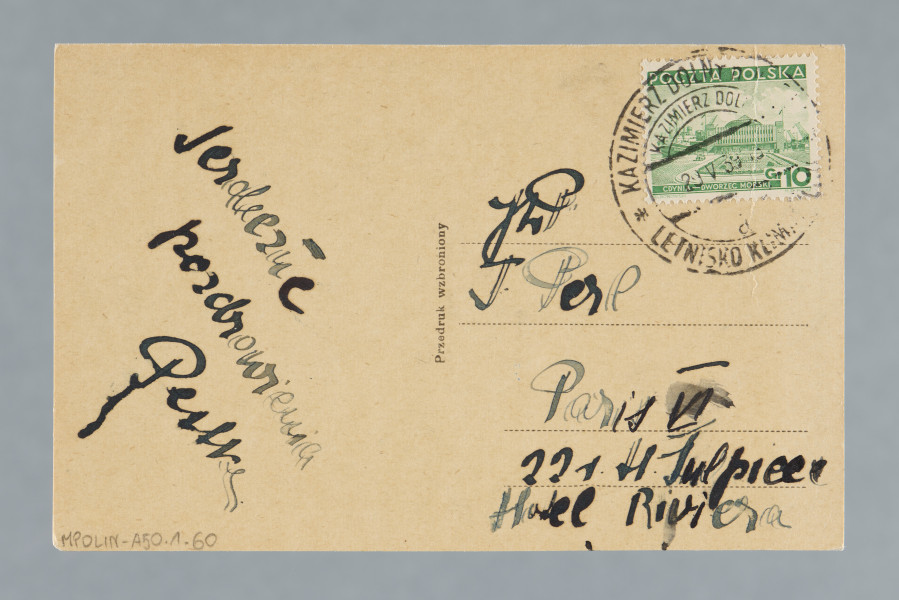 Serdeczne
pozdrowienia
Przedruk wzbroniony
POCZTA POLSKA
GR 10
GDYNIA - DWORZEC MORSKI
KAZIMIERZ DOLN
KAZIMIERZ DOL
LETNISKO KLIM.
J. Perl
Paris VI
22 r. St Sulpice
Hotel Riviera
MPOLIN-A50.1.60